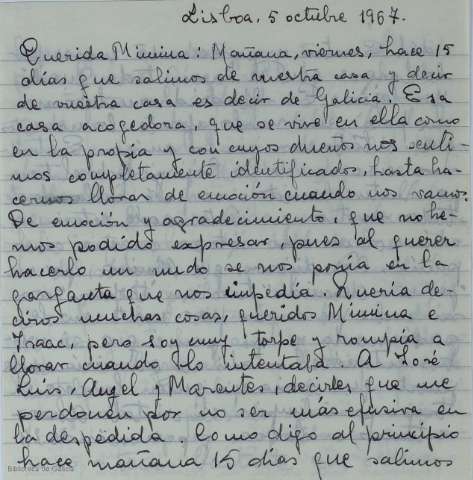 Lisboa, 5 octubre 1967.
Querida Mimina: Mañana, viernes, hace 15
días que salimos de vuestra casa y decir
de vuestra casa es decir de Galicia. Esa
casa acogedora, que se vive en ella como
en la propia y con cuyos dueños nos senti-
mos completamente identificados, hasta ha-
cernos llorar de emoción cuando nos vamos.
De emoción y agradecimiento, que no he-
mos podido expresar, pues al querer
hacerlo un nudo se nos ponía en la
garganta que nos impedía. Quería de-
ciros muchas cosas, queridos Mimina e
Isaac, pero soy muy torpe y rompía a
llorar cuando lo intentaba. A José
Luis, Angel y Marentes, decirles que me
perdonen por no ser más efusiva en
la despedida. Como digo al principio
hace mañana 15 días que salimos
Biblioteca de Galicia